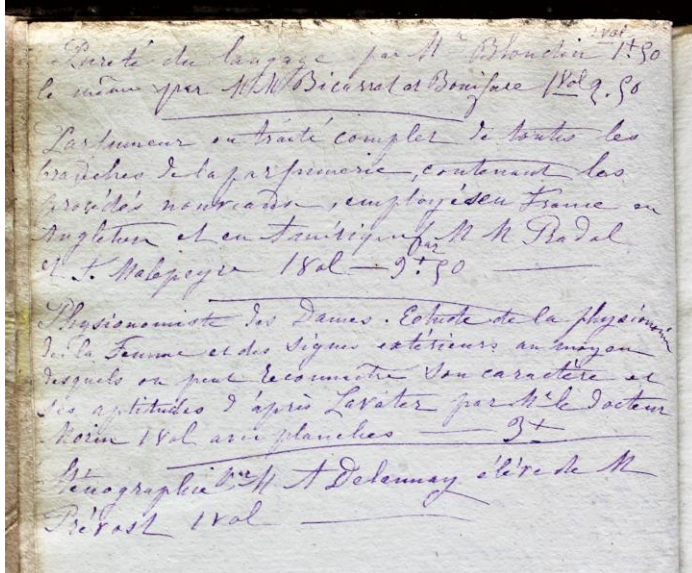 1 Vol
Pureté du langage par Mr Blondin 1f 50
le même par MM Bicarrat et Boniface 1 Vol 2.50
Parfumeur ou traité complet de toutes les
branches de la parfumerie, contenant les
procédés nouveaux, employés en France en
Angleterre et en Amérique par M M Pradal
et F. Malepeyre 1 Vol — 3f 50
Physionomiste des Dames. Etude de la physionomie
de la Femme et des signes extérieurs au moyen
desquels on peut reconnaître son caractère et
ses aptitudes d'après Lavater par Mr le docteur
Morin 1 Vol avec planches — 3f
Sténographie par M A Delaunay élève de M
Prévost 1 Vol —